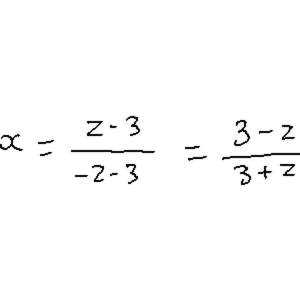 x = \frac{z-3}{-z-3} = \frac{3-z}{3+z}